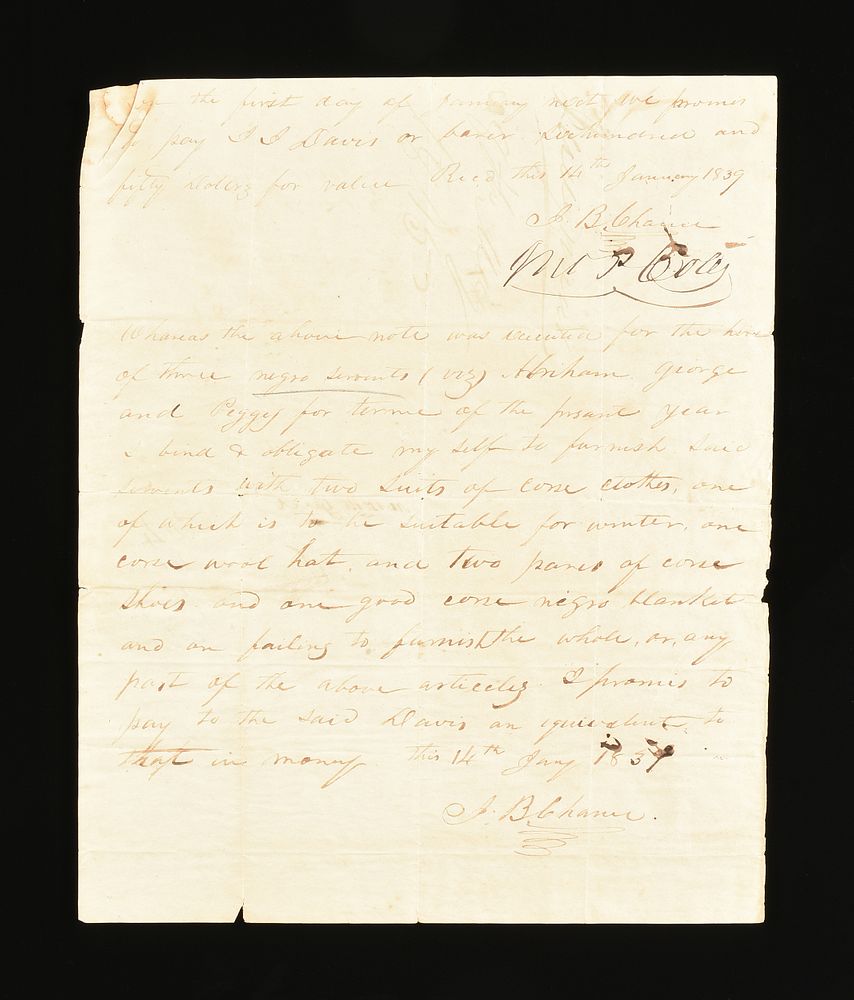 the first day of January next we promis
to pay J J Davis or barer hundred and
fifty Dollers for value Recd this 14th January 1839
J. B. Chance
Jno P Coles
Whareas the above note was executed for the hire
of three negro servants (viz) Abriham George
and Peggy for terme of the prsant year
I bind & obligate my self to furnish said
servants with two suits of corse clothes, one
of which is to be suitable for winter, one
corse wool hat, and two pares of corse
shoes and one good corse negro blanket
and on failing to furnish the whole, or, any
part of the above articeles I promis to
pay to the said Davis an equivalent to
that in money this 14th Jany 1839
J. B. Chance.